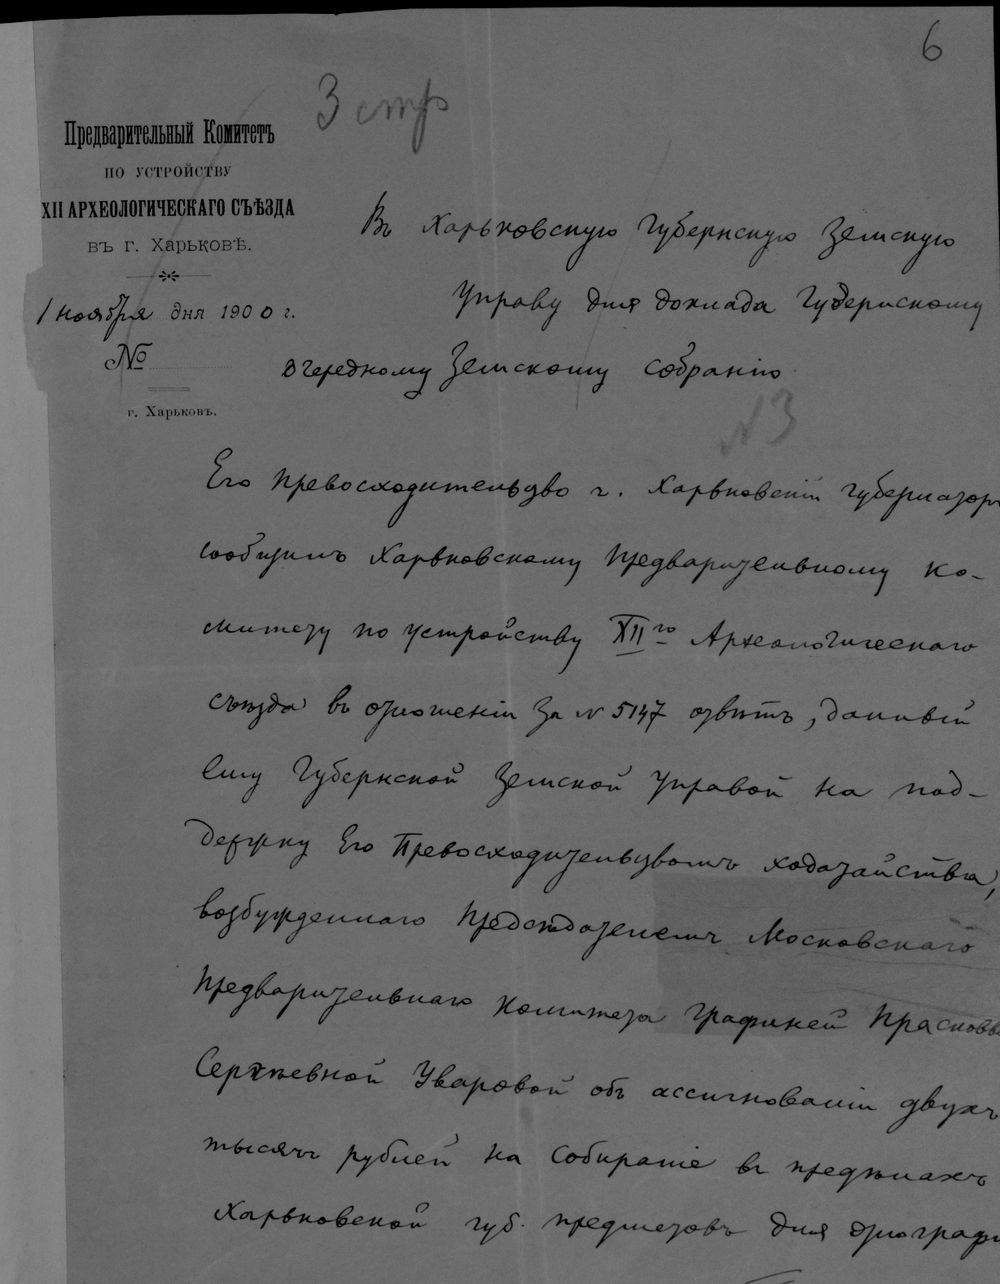 6
3 стр
Предварительный Комитетъ
ПО УСТРОЙСТВУ
XII АРХЕОЛОГИЧЕСКАГО СЪѢЗДА
въ г. Харьковѣ.
1 ноября дня 1900 г.
№
г. Харьковъ.
Въ Харьковскую Губернскую Земскую
Управу для доклада Губернскому
очередному Земскому Собранію
№ 3
Его Превосходительство г. Харьковскій Губернаторъ
сообщилъ Харьковскому Предварительному Ко-
митету по устройству XII го Археологическаго
съѣзда въ отношеніи за № 5147 отвѣтъ, данный
ему Губернской Земской Управой на под-
держку Его Превосходительствомъ ходатайства,
возбужденнаго Предсѣдателемъ Московскаго
Предварительнаго Комитета Графиней Прасковьей
Сергѣевной Уваровой объ ассигнованіи двухъ
тысячъ рублей на собираніе въ предѣлахъ
Харьковской губ. предметовъ для этнографи